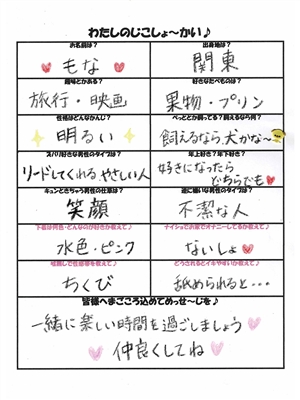 わたしのじこしょ～かい♪
お名前は？
出身地は？
もな
関東
趣味とかある？
好きなたべものは？
旅行・映画
果物・プリン
性格はどんなかんじ？
ペットとか飼ってる？飼えるなら何？
明るい
飼えるなら、犬かな～
ズバリ好きな男性のタイプは？
年上好き？年下好き？
リードしてくれるやさしい人
好きになったら、どちらでも
キュンときちゃう男性の仕草は？
逆に嫌いな男性のタイプは？
笑顔
不潔な人
下着は何色・どんなのが好きか教えて♪
ナイショでお家でオナニーしてるか教えて♪
水色・ピンク
ないしょ
性感帯を教えて♪
どうされるとイキやすいか教えて♪
ちくび
舐められると・・・
皆様へまごころ込めてめっせ～じを♪
一緒に楽しい時間を過ごしましょう
仲良くしてね